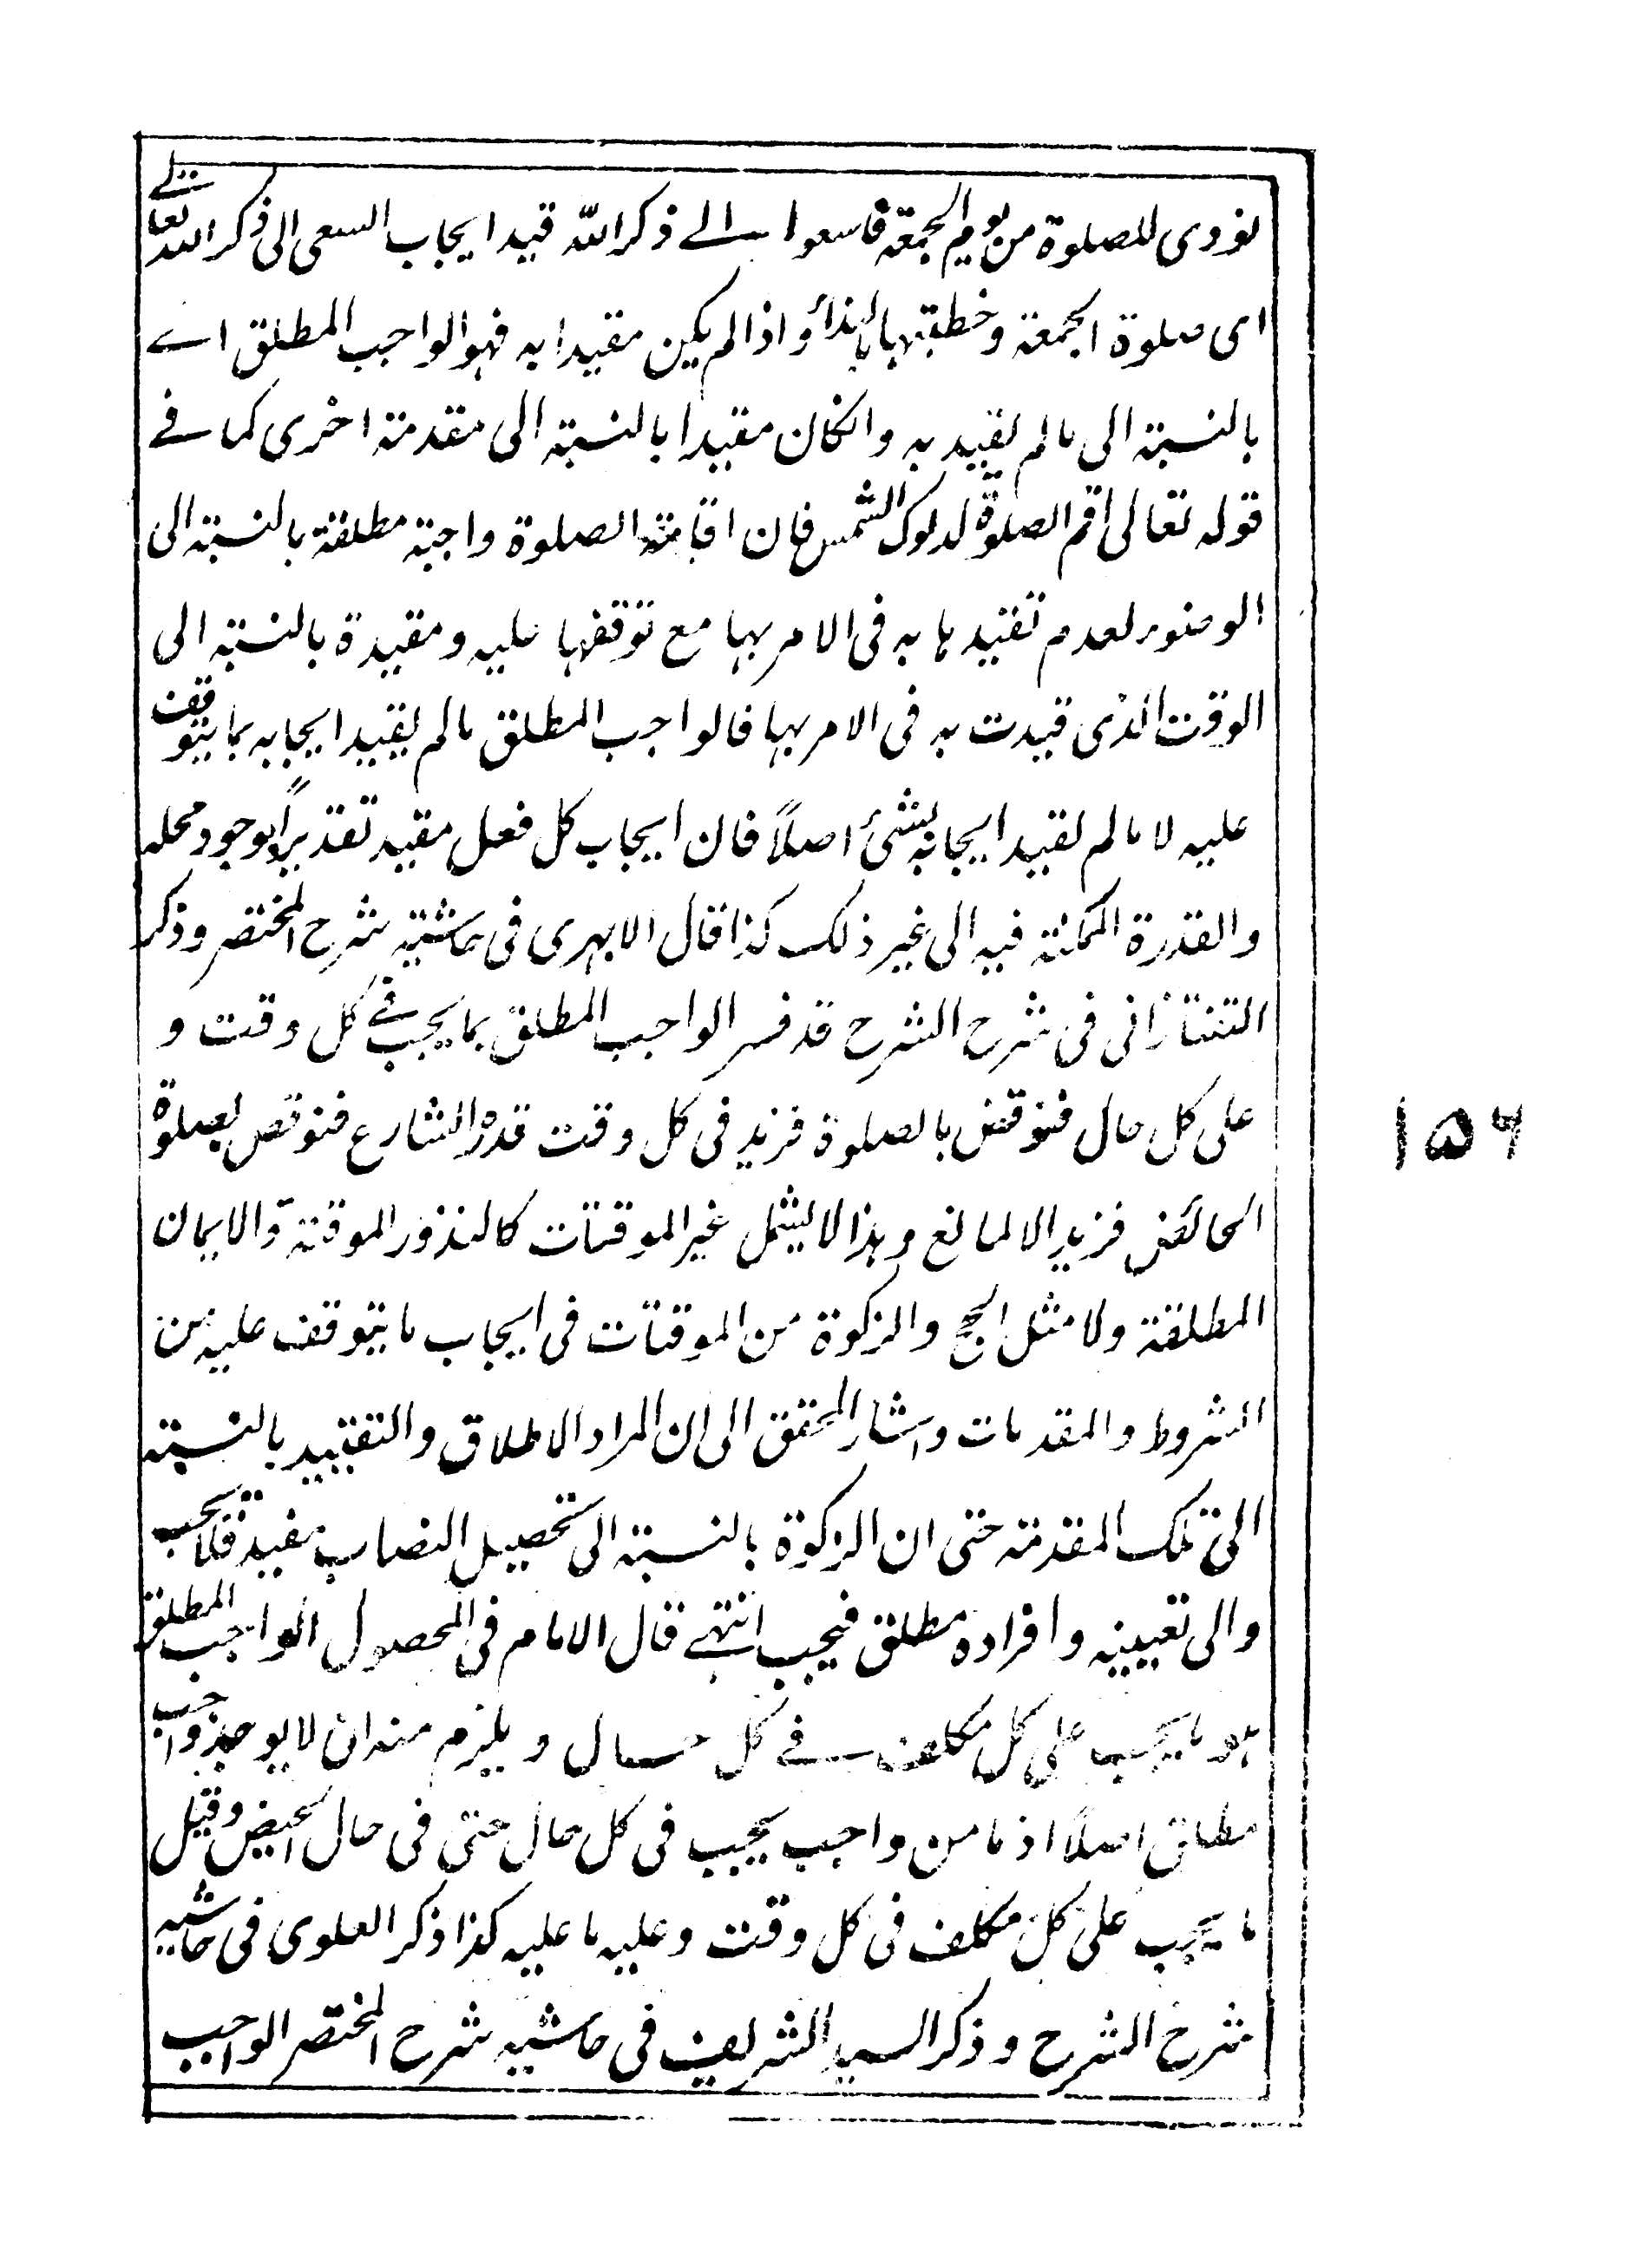 نودى للصلوة من يوم الجمعة فاسعوا الے ذكر الله قيد ايجاب السعى الى ذكر الله تعالے
اى صلوة الجمعة و خطبتها بالنداء و اذا لم يكن مقيدا به فهو الواجب المطلق اے
بالنسبة الى ما لم يقيد به و انكان مقيدا بالنسبة الى مقدمة اخرى كما فے
قوله تعالى اقم الصلوة لدلوك الشمس فان اقامة الصلوة واجبة مطلقة بالنسبة الى
الوضوء لعدم تقييدها به فى الامر بها مع توقفها عليه و مقيدة بالنسبة الى
الوقت الذى قيدت به فى الامر بها فالواجب المطلق ما لم يقيد ايجابه بما يتوقف
عليه لا ما لم يقيد ايجابه بشئ اصلاً فان ايجاب كل فعل مقيد تقديراً بوجود محله
والقدرة الممكنة فيه الى غير ذلك كذا قال الابهرى فى حاشية شرح المختصر و ذكر
التفتازانى فى شرح الشرح قد فسر الواجب المطلق بما يجب فے كل وقت و
على كل حال فنوقض بالصلوة فزيد فى كل وقت قدره الشارع فنوقض بصلوة
الحائض فزيد الا لمانع و هذا لا يشمل غير الموقتات كالنذور الموقتة و الايمان
المطلقة ولا مثل الحج والزكوة من الموقتات فى ايجاب ما يتوقف عليه من
الشروط و المقدمات و اشار المحقق الى ان المراد الاطلاق و التقييد بالنسبة
الى تلك المقدمة حتى ان الزكوة بالنسبة الى تحصيل النصاب مقيدة فلا يجب
والى تعيينه و افراده مطلق فيجب انتهے قال الامام فى المحصول الواجب المطلق
هو ما يجب على كل مكلف فے كل حال و يلزم منه ان لا يوجد واجب
مطلق اصلاً اذ ما من واجب يجب فى كل حال حتى فى حال الحيض و قيل
ما يجب على كل مكلف فى كل وقت و عليه ما عليه كذا ذكر العلوى فى حاشيه
شرح الشرح و ذكر السيد الشريف فى حاشيه شرح المختصر الواجب
١٥٦